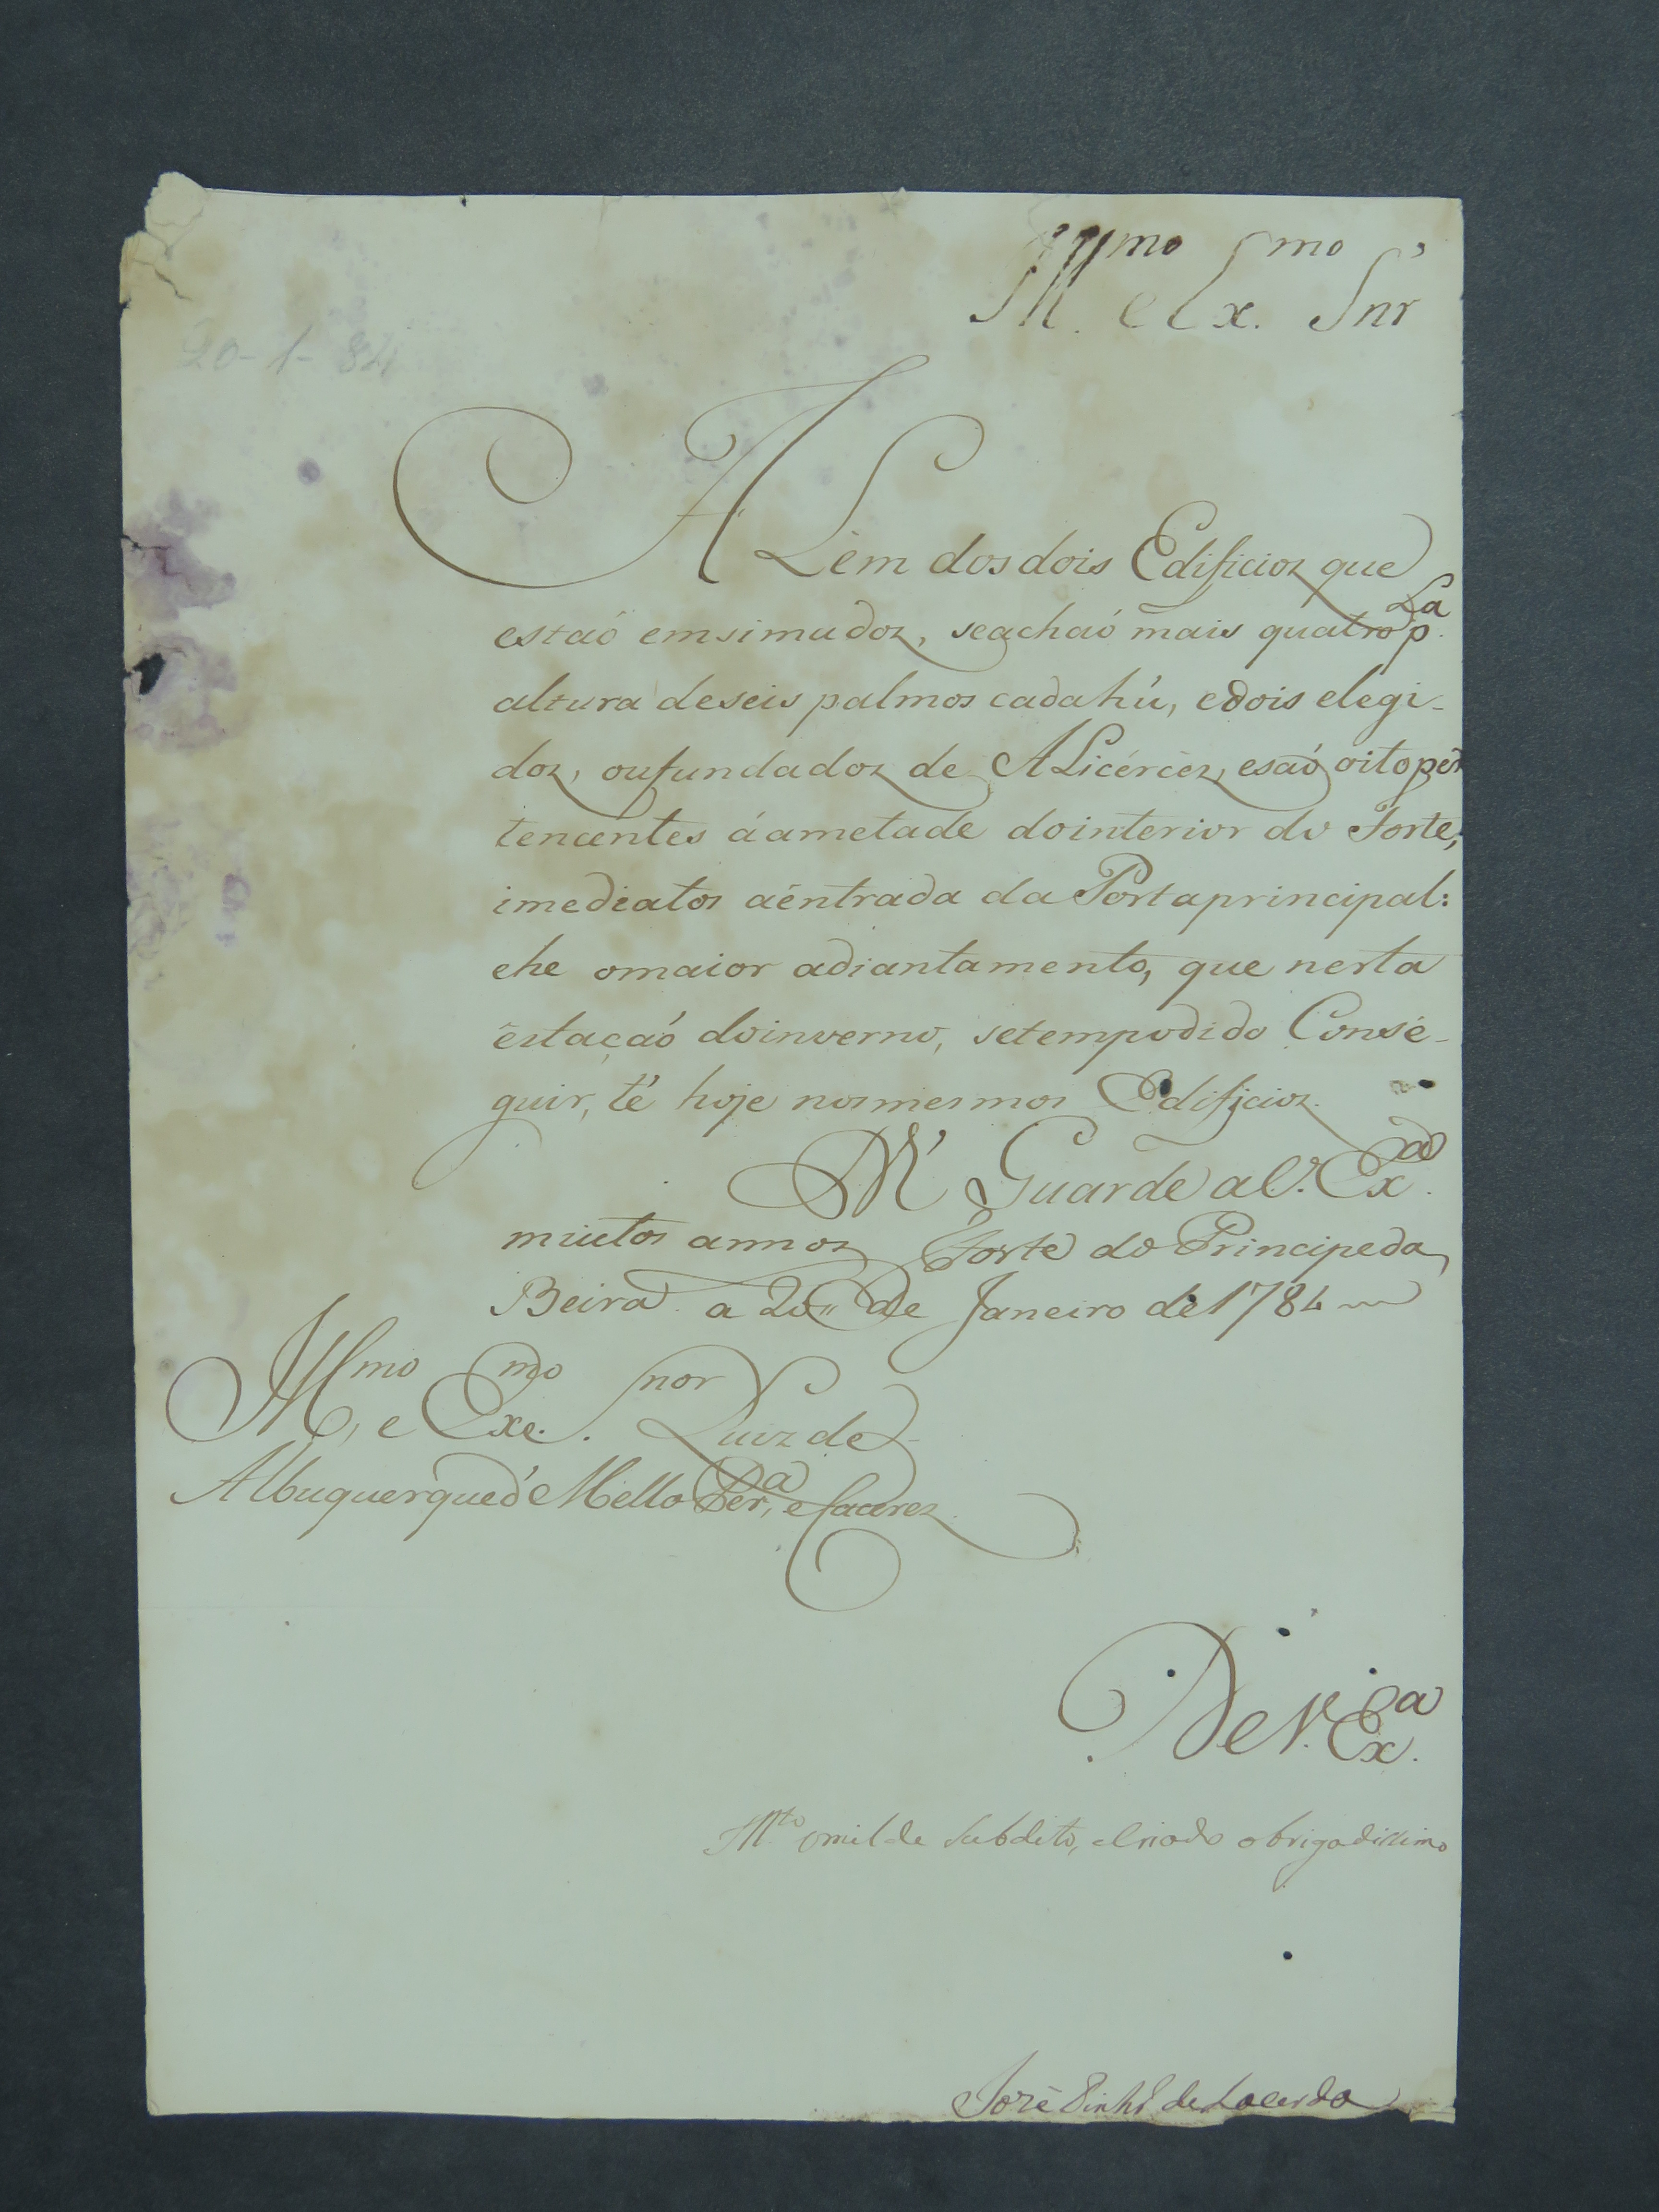 Ill.mo e Ex.mo Snr'
20-1-84
ALèm dos dois Edificios que
estaó emsimados, seachaó mais quatro p.La
altura deseis palmos cadahú, edois elegi-
dos, oufundados de ALicérces, esaó oitoper
tencentes áametade dointerior do Forte,
imediatos aéntrada da Portaprincipal:
ehe omaior adiantamento, que nesta
éstaçaó doinverno, setempodido Conse-
guir, té hoje nosmesmos Edificios.
Guarde a V. Ex.a
muitos annos Forte do Principeda
Beira a 20 de Janeiro de 1784
Ill.mo, e Exe.mo Snor Luiz de
Albuquerqued'e Mello Per.a, e Caceres
De V. Ex.a
M.to omilde Subdito, eCriado obrigadissimo
José Pinhr.o de Lacerda